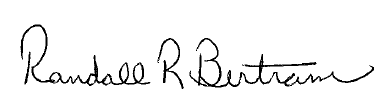 Randall R Bertram